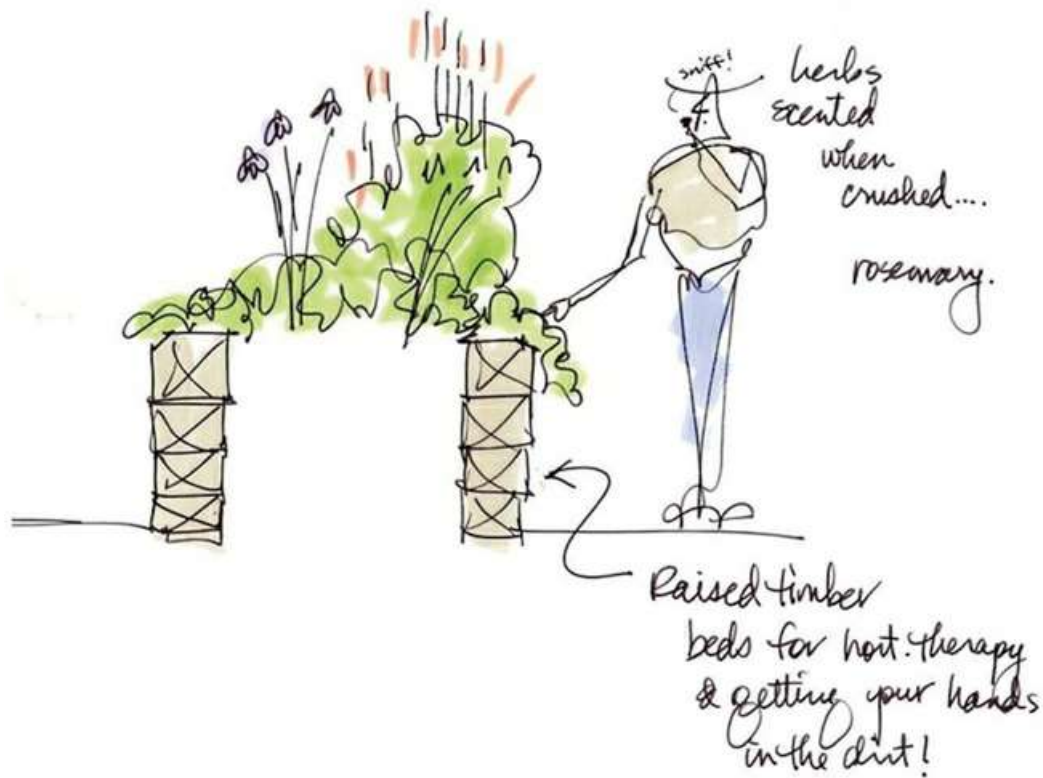 sniff!
herbs
scented
when
crushed....
rosemary.
Raised timber
beds for hort. therapy
& getting your hands
in the dirt!